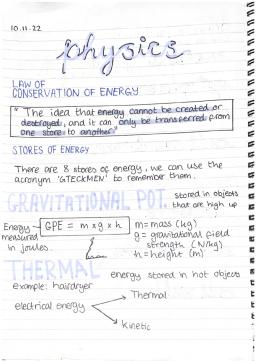 10.11.22
physics
LAW OF
CONSERVATION OF ENERGY
"The idea that energy cannot be created or
destroyed, and it can only be transferred from
one store to another"
STORES OF ENERGY
There are 8 stores of energy, we can use the
acronym 'GTECKMEN' to remember them.
GRAVITATIONAL POT. stored in objects
that are high up
Energy measured in joules.
GPE = m x g x h
m = mass (kg)
g = gravitational field
strength (N/kg)
h = height (m)
THERMAL energy stored in hot objects
example: hairdryer
Thermal
electrical energy
Kinetic